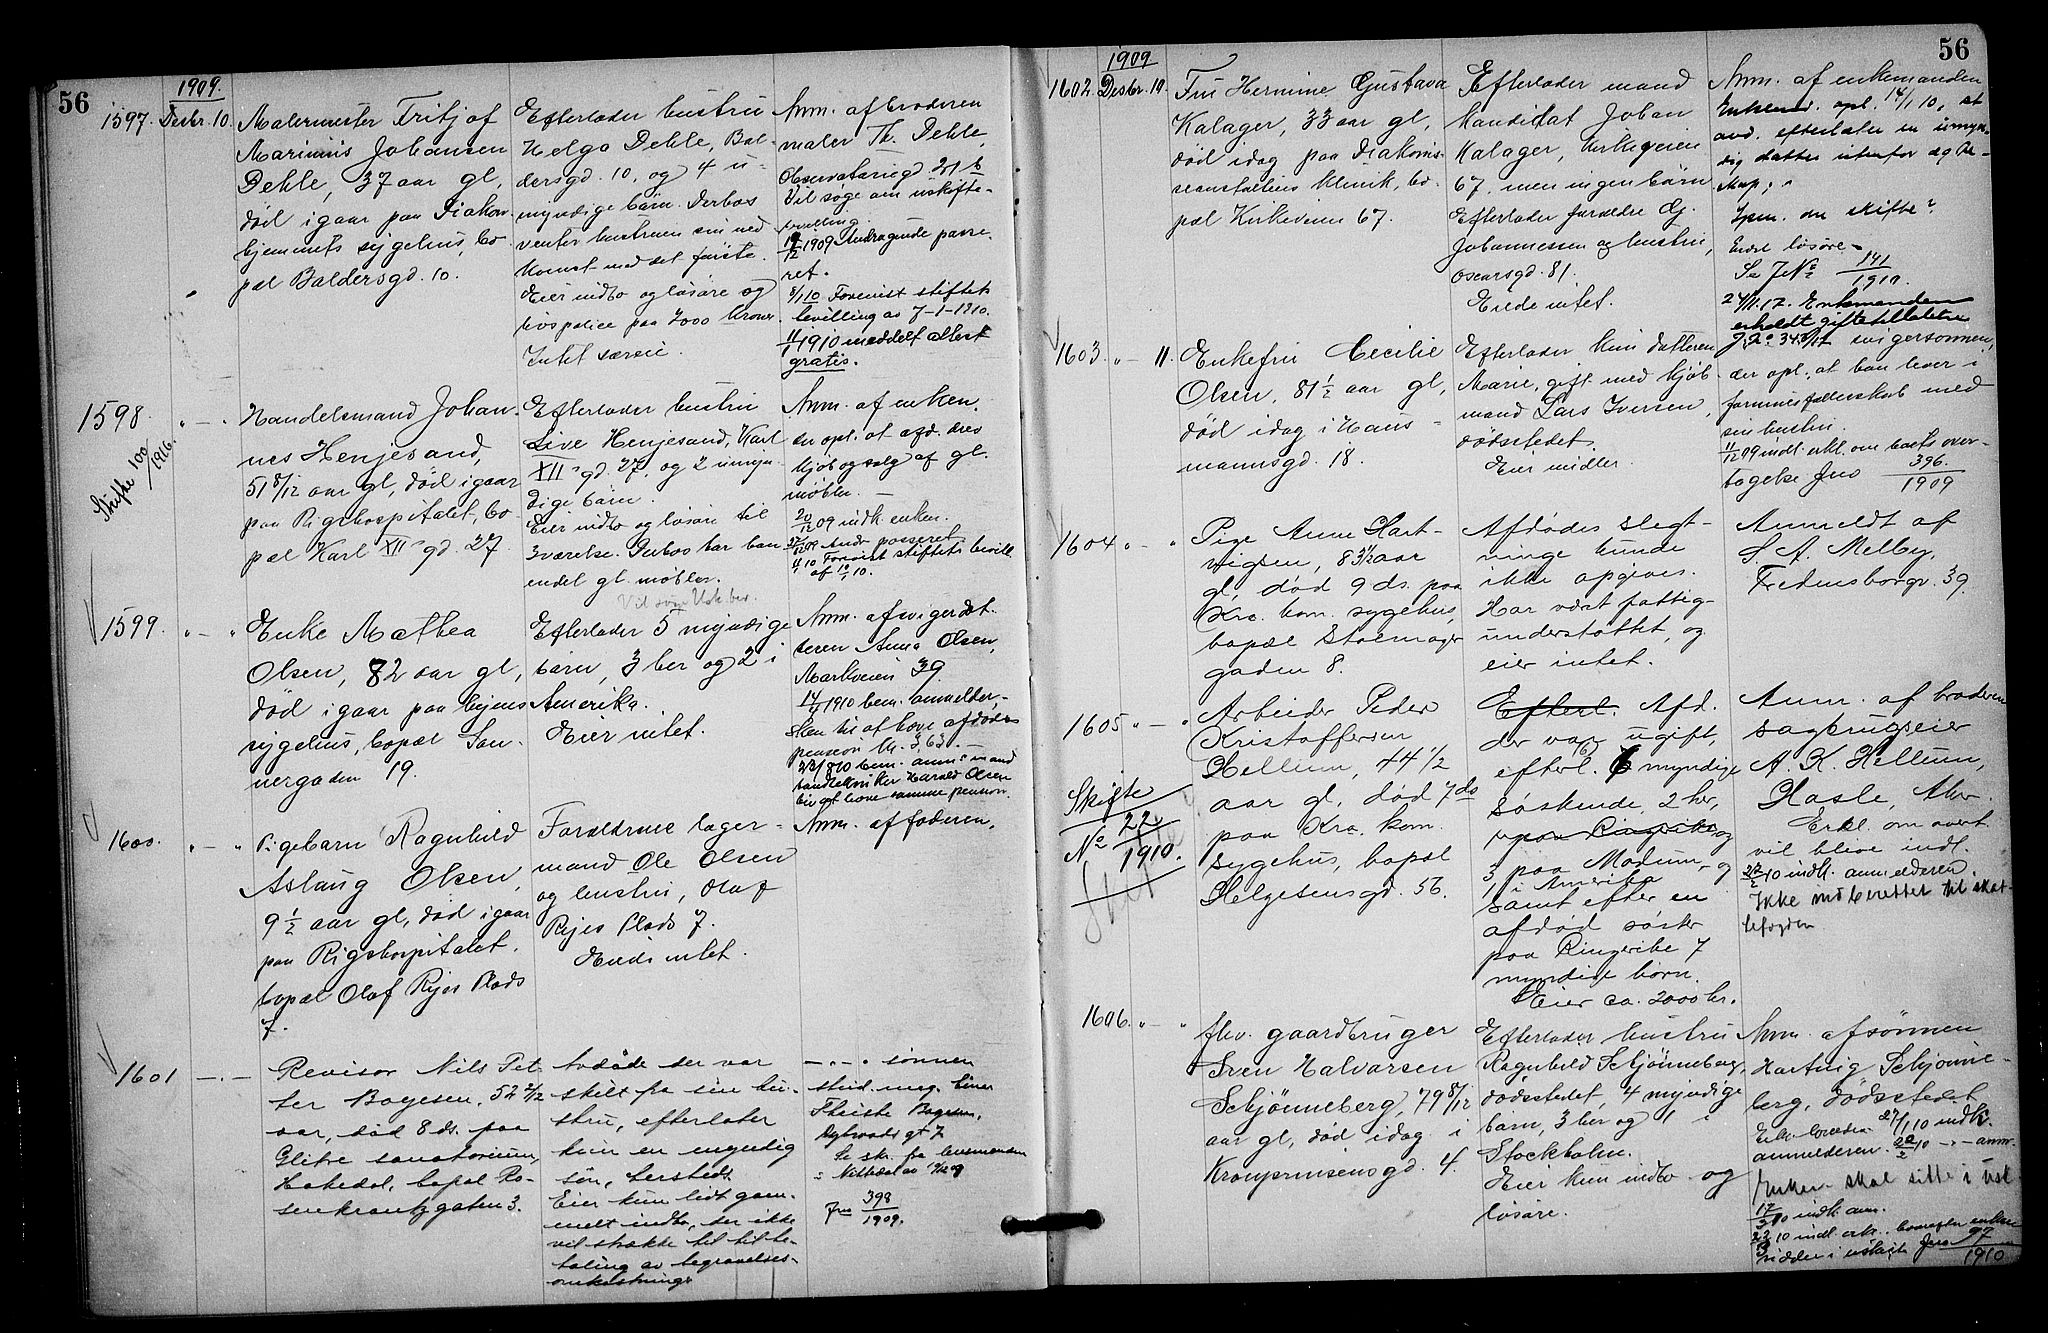 56
1909.
1597. Desbr. 10.
Malermester Fritjof
Marinius Johansen
Dehle, 37 aar gl,
död igaar paa Diakon-
hjemmets sygehus, bo-
pæl Baldersgd. 10.
Efterlader hustru
Helga Dehle, Bal-
dersgd. 10, og 4 u-
myndige börn. Derhos
venter hustruen sin ned-
komst med det förste.
Eier indbo og lösöre og
livspolice paa 2000 kroner.
Intet særeie.
Anm. af broderen
maler Th. Dehle,
Observatoriegd 21 b
Vil söge om uskifte-
bevilling.
1909 Andragende passe-
ret.
8/1 10 Forevist skifte
bevilling av 7-1-1910.
11/1 1910 meddelt attest
gratis.
1598.
Skifte 100/1916.
Handelsmand Johan-
nes Henjesand,
51 8/12 aar gl, död igaar
paa Rigshospitalet, bo-
pæl Karl XII's gd. 27.
Efterlader hustru
Live Henjesand, Karl
XII's gd. 27, og 2 umyn-
dige börn.
Eier indbo og lösöre til
Derhos har han
endel gl. möbler.
Vil söge Usk.bev.
Anm. af enken,
der opl. at afd. drev
kjöb og salg af gl.
möbler.
20/12 09 indk. enken.
Andr. passeret
11/1 10 Forevist skiftets bevill.
af 10/1 10.
1599.
Enke Mathea
Olsen, 82 aar gl,
död igaar paa byens
sygehus, bopæl San-
nergaden 19.
Efterlader 5 myndige
börn, 3 her og 2 i
Amerika.
Eier intet.
Anm. af svigerdat-
teren Anna Olsen,
Markveien 39.
1910 bem. anmelder-
sken til at hæve afdödes
pension kr. 3,63.
bem. anm's mand
Harald Olsen
til at hæve samme pension.
1600.
Pigebarn Ragnhild
Aslaug Olsen,
9 1/2 aar gl, död igaar
paa Rigshospitalet,
bopæl Olaf Ryes Plads
7.
Forældrene lager-
mand Ole Olsen
og hustru, Olaf
Ryes Plads 7.
Eiede intet.
Anm. af faderen.
1601
Revisor Nils Pet-
ter Bagesen, 52 2/12
aar, död 8 ds. paa
Glitre sanatorium,
Hakedal, bopæl Ro-
senkrantzgaten 3.
Avdöde der var
skilt fra sin hu-
stru, efterlater
kun en myndig
sön, hersteds.
Eier kun lidt gam-
melt indbo, der ikke
vil strække til til be-
taling av begravelses-
omkostninger
sönnen
stud. mag. Einar
Theiste Bagesen,
Dybwads gt 7
Se skr. fra lensmanden
i Nittedal av
Jno 398/1909.
56
1909
1602. Desbr. 10.
Fru Hermine Gustava
Kalager, 33 aar gl,
död idag paa Diakonis-
seanstaltens klinik, bo-
pæl Kirkeveien 67.
Efterlader mand
Kandidat Johan
Kalager, Kirkeveien
67, men ingen börn
Efterlader forældre G.
Johannessen og hustru,
Oscarsgd. 81.
Eiede intet.
Anm. af enkemanden
Enkemd. opl. 14/1 10, at
avd. efterlater en umyn-
dig datter utenfor egte-
skap.
Spm. om skifte?
Endel lösöre.
Se JNo 141/1910.
24/11.17. Enkemanden
erholdt giftetilladelse
1603. 11.
Enkefru Cecilie
Olsen, 81 1/2 aar gl,
död idag i Haus-
mannsgd. 18.
Efterlader kun datteren
Marie, gift med kjöb-
mand Lars Iversen,
dödsstedet.
Eier midler.
svigersonnen,
der opl., at han lever i
formuesfællesskab med
sin hustru.
11/12 09 indl. erkl. om boets over-
tagelse Jno 396/1909
1604
Pige Anne Hart-
vigsen, 83 1/2 aar
gl, död 9 ds. paa
Kra. kom. sygehus,
bopæl Stolmager
gaden 8.
Afdödes slegt-
ninge kunde
ikke opgives.
Har vært fattig-
understöttet, og
eier intet.
Anmeldt af
S. A. Melby,
Fredensborgv. 39.
1605
Skifte
No 22/1910.
Arbeider Peder
Kristoffersen
Hellum, 44 1/2
aar gl, död 7 ds
paa Kra. kom.
sygehus, bopæl
Helgesensgd. 56.
Efterl. Afd.
der var ugift,
efterl. 6 myndige
söskende, 2 her,
paa Ringerike og
3 paa Modum, og
1 i Amerika
samt efter en
afdöd söster
paa Ringerike 7
myndige börn.
Eier ca. 2000 kr.
Anm. af broderen
sagbrugseier
A. K. Hellum,
Hasle, Aker.
Erkl. om overt.
vil blive indl.
10 indk. anmelderen.
Ikke indberettet til skat-
tefogden
1606.
fhv. gaardbruger
Sven Halvorsen
Schjönneberg, 79 8/12
aar gl, död idag i
Kronprinsensgd. 4.
Efterlader hustru
Ragnhild Schjönneberg,
dödsstedet, 4 myndige
börn, 3 her og 1 i
Stockholm.
Eier kun indbo og
lösöre.
Anm. af sönnen
Hartvig Schjönne-
berg, dödsstedet
27/1 10 indk.
anmelderen. anm.
Enken skal sitte i usk.
17/3 10 indk. anm.
10 indl. erk. hvorefter enken
sidder i uskifte Jno 97/1910